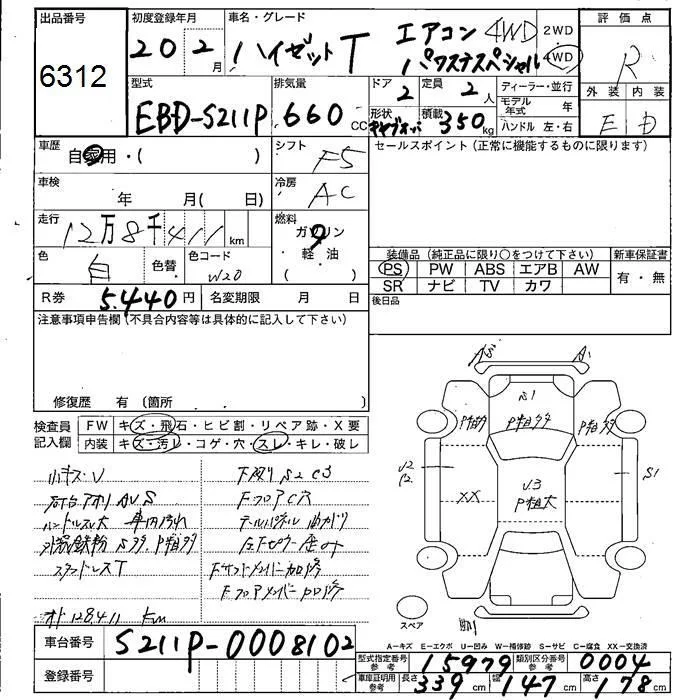 出品番号
6312
初度登録年月
20 2 月
車名・グレード
ハイゼットT
エアコン 4WD
パワステスペシャル
2WD
4WD
評価点
R
外装 内装
E D
型式
EBD-S211P
排気量
660 CC
ドア
2
定員
2 人
形状
積載
350 kg
ディーラー・並行
モデル年式 年
ハンドル 左・右
車歴
自家用・( )
シフト
F5
セールスポイント(正常に機能するものに限ります)
車検
年 月( 日)
冷房
AC
走行
12万8千411 km
燃料
ガソリン
軽油
( )
色
白
色替
色コード
W20
装備品(純正品に限り○をつけて下さい)
新車保証書
PS PW ABS エアB AW
SR ナビ TV カワ
有・無
R券
5.440円
名変期限 月 日
後日品
注意事項申告欄(不具合内容等は具体的に記入して下さい)
修復歴 有(箇所 )
検査員記入欄
FW キズ・飛石・ヒビ割・リペア跡・X要
内装 キズ・汚レ・コゲ・穴・スレ・キレ・破レ
小キズ・V
下廻り S2 C3
石台アオリ AU.S
Fフロア C穴
ハンドルスレ大 車内汚れ
スタッドレスT
オド 128411 km
A5
A1
S1
P粗多
P粗多
P粗多
U2
B2
XX
U3
P粗大
S1
スペア
A−キズ E−エクボ U−凹み W−補修跡 S−サビ C−腐食 XX−交換済
車台番号
S211P-0008102
登録番号
型式指定番号 参考
15979
類別区分番号 参考
0004
車庫証明用 参考
長さ 339 cm
幅 147 cm
高さ 178 cm